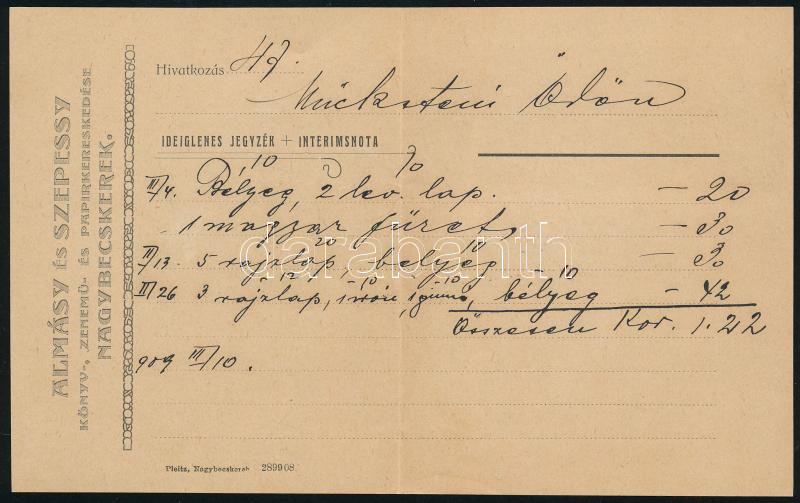 ALMÁSY és SZEPESSY
KÖNYV-, ZENEMŰ- ÉS PAPIRKERESKEDÉSE
NAGYBECSKEREK.
Hivatkozás 47.
Ödön
IDEIGLENES JEGYZÉK + INTERIMSNOTA
10 10
II/4. Bélyeg, 2 lev. lap. – 20
1 magyar füzet, – 30
20 10
II/13. 5 rajzlap bélyeg – 30
-12 -10 -10 -10
3 rajzlap, 1 1 gummi, bélyeg – 42
Összesen Kor. 1.22
909 III/10.
darabanth
Pleitz, Nagybecskerek 289908